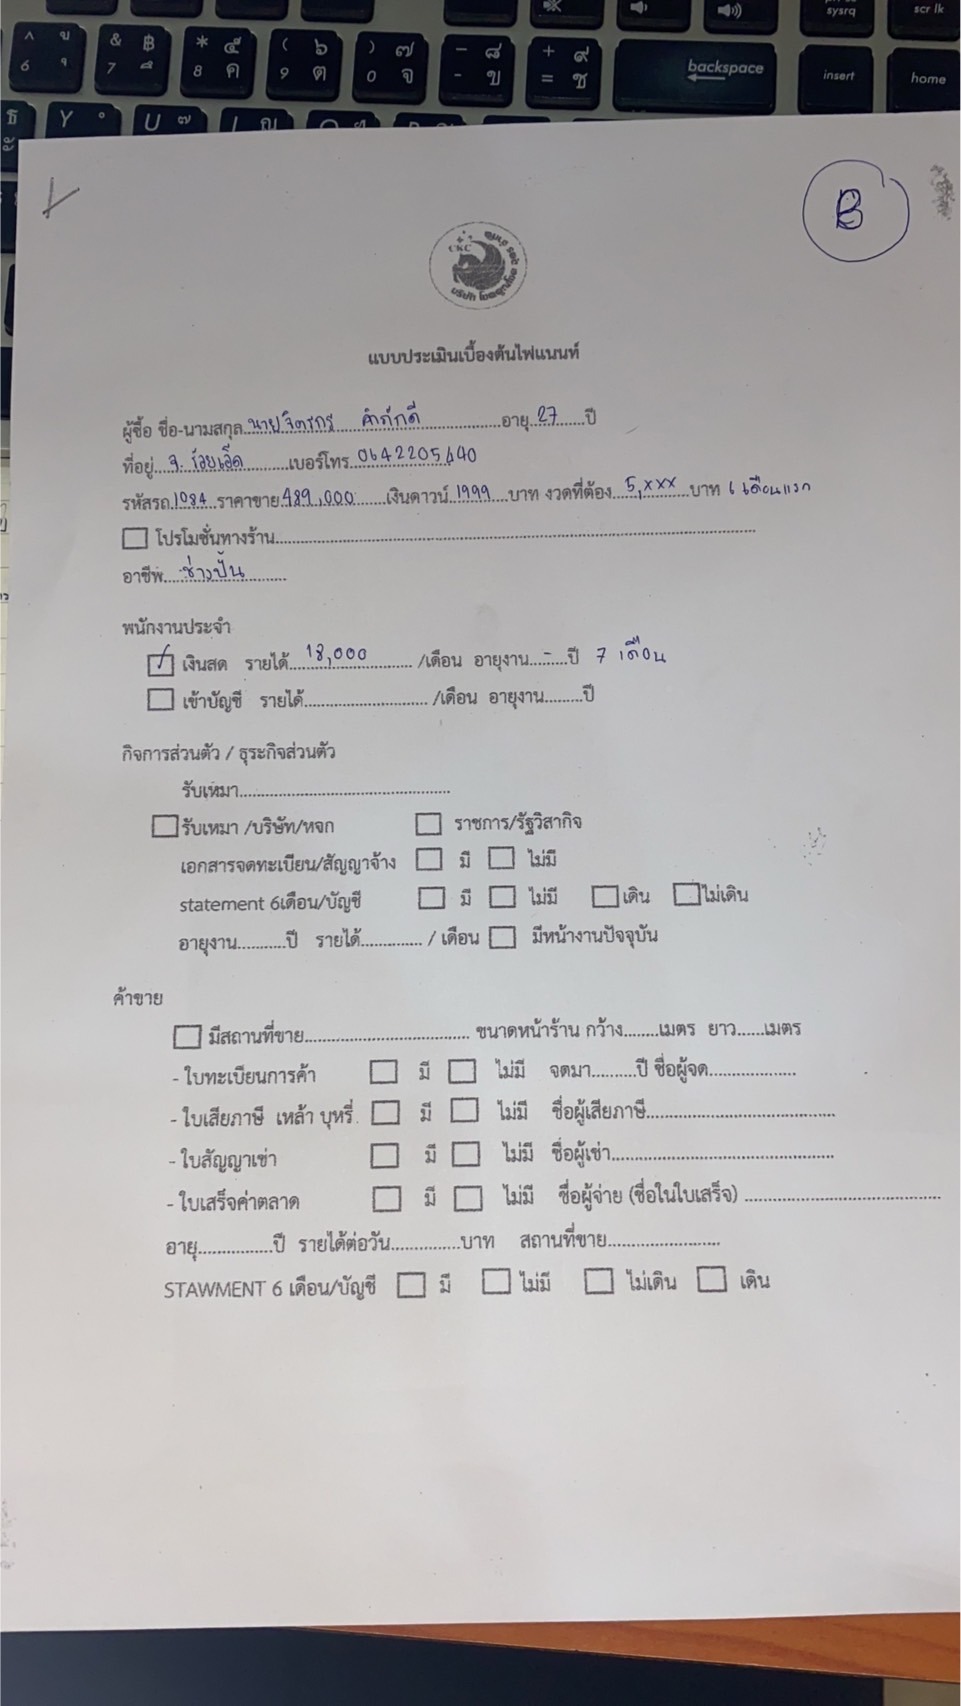 ^ ข & ฿ * ๕ ( ๖ ) ๗ _ ๘ + ๙ backspace sysrq scr lk
6 ู 7 ึ 8 ค 9 ต 0 จ - ข = ช insert home
Y U
B
UKC
แบบประเมินเบื้องต้นไฟแนนท์
ผู้ซื้อ ชื่อ-นามสกุล นาย จิตรกร คำภักดี อายุ 27 ปี
ที่อยู่ จ. ร้อยเอ็ด เบอร์โทร
รหัสรถ 1084 ราคาขาย 489,000 เงินดาวน์ 1999 บาท งวดที่ต้อง 5,xxx บาท 6 เดือนแรก
โปรโมชั่นทางร้าน
อาชีพ ช่างปั้น
พนักงานประจำ
เงินสด รายได้ 18,000 /เดือน อายุงาน - ปี 7 เดือน
เข้าบัญชี รายได้ /เดือน อายุงาน ปี
กิจการส่วนตัว / ธุระกิจส่วนตัว
รับเหมา
รับเหมา /บริษัท/หจก ราชการ/รัฐวิสากิจ
เอกสารจดทะเบียน/สัญญาจ้าง มี ไม่มี
statement 6เดือน/บัญชี มี ไม่มี เดิน ไม่เดิน
อายุงาน ปี รายได้ / เดือน มีหน้างานปัจจุบัน
ค้าขาย
มีสถานที่ขาย ขนาดหน้าร้าน กว้าง เมตร ยาว เมตร
- ใบทะเบียนการค้า มี ไม่มี จดมา ปี ชื่อผู้จด
- ใบเสียภาษี เหล้า บุหรี่ มี ไม่มี ชื่อผู้เสียภาษี
- ใบสัญญาเช่า มี ไม่มี ชื่อผู้เช่า
- ใบเสร็จค่าตลาด มี ไม่มี ชื่อผู้จ่าย (ชื่อในใบเสร็จ)
อายุ ปี รายได้ต่อวัน บาท สถานที่ขาย
STAWMENT 6 เดือน/บัญชี มี ไม่มี ไม่เดิน เดิน